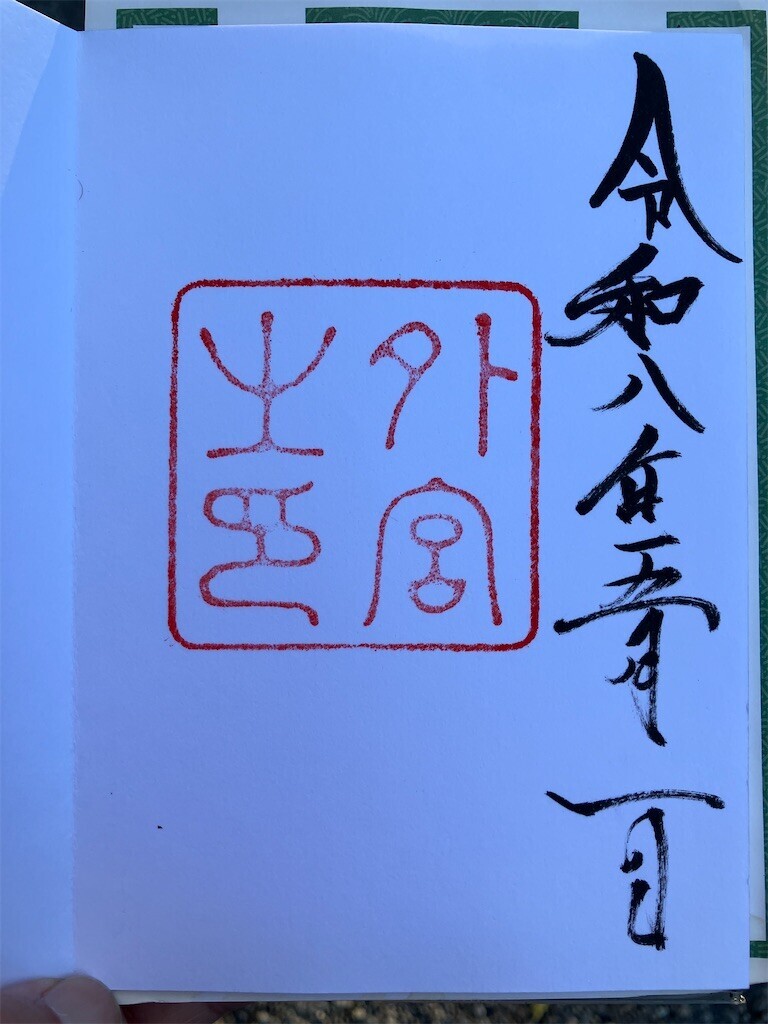 令和八年五月一日
外宮
之印